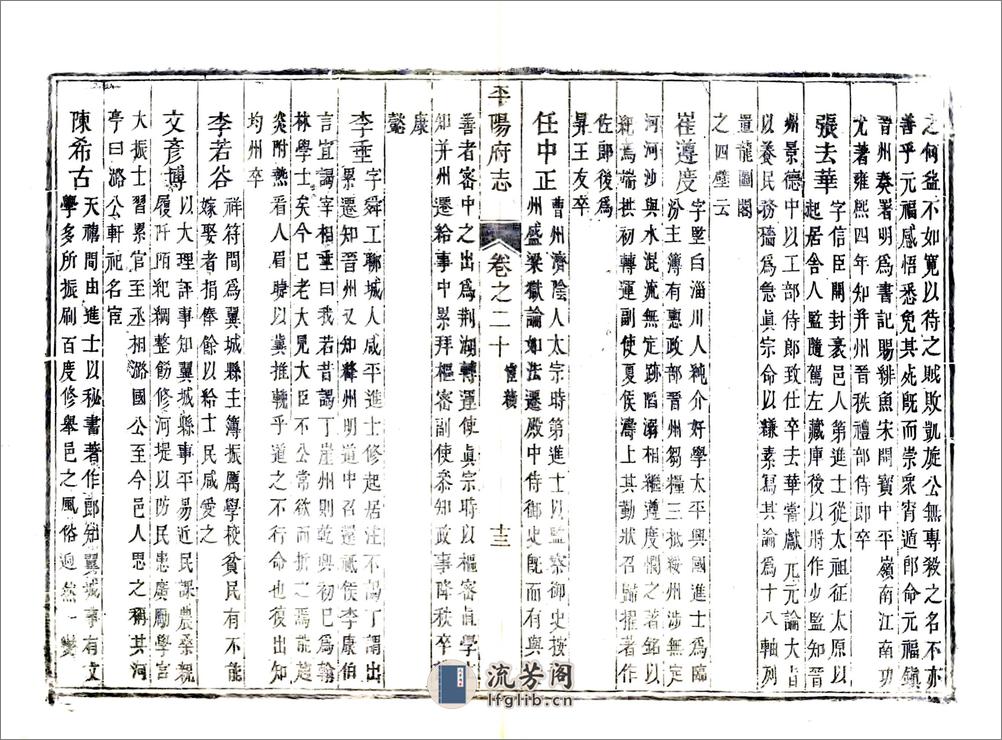 之何益不如寬以待之賊敗凱旋公無專殺之名不亦
善乎元福感悟悉免其死既而崇衆宵遁郎命元福鎮
晉州奏署明爲書記賜緋魚宋開寶中平嶺南江南功
尤著雍熙四年知并州晉秩禮部侍郎卒
張去華字信臣開封襄邑人第進士從太祖征太原以
起居舍人監隨駕左藏庫後以將作少監知晉
州景德中以工部侍郎致仕卒去華嘗獻元元論大旨
以養民務穡爲急眞宗命以縑素寫其論爲十八軸列
置龍圖閣
之四壁云
崔遵度字堅白淄川人純介好學太平興國進士爲臨
汾主簿有惠政部晉州芻糧三抵綏州涉無定
河河沙與水混流無定跡陷溺相繼遵度憫之著銘以
紀焉端拱初轉運副使夏侯濤上其勤狀召歸擢著作
佐郎後爲
昇王友卒
任中正曹州濟陰人太宗時第進士以監察御史按
州盛梁獄論如法遷殿中侍御史既而有與
平陽府志
卷之二十
宦績
十三
善者審中之出爲荆湖轉運使眞宗時以樞密直學士
知并州遷給事中累拜樞密副使叅知政事降秩卒
康
懿
李垂字舜工聊城人咸平進士修起居注不謁丁謂出
累遷知晉州又知絳州明道中召還祗侯李康伯
言宜謁宰相垂曰我若昔謁丁崖州則乾興初已爲翰
林學士矣今已老大見大臣不公常欲而折之焉能趨
炎附熱看人眉睫以冀推輓乎道之不行命也後出知
均州卒
李若谷祥符間爲翼城縣主簿振厲學校貧民有不能
嫁娶者捐俸餘以給士民咸愛之
文彥博以大理評事知翼城縣事平易近民課農桑親
履阡陌犯稠整飭修河堤以防民患廣勵學宮
大振士習累官至丞相潞國公至今邑人思之稱其河
亭曰潞公軒祀名宦
陳希古天禧間由進士以秘書著作郎知翼城事有文
學多所振刷百度修舉邑之風俗逈然一變
流芳阁
lfglib.com